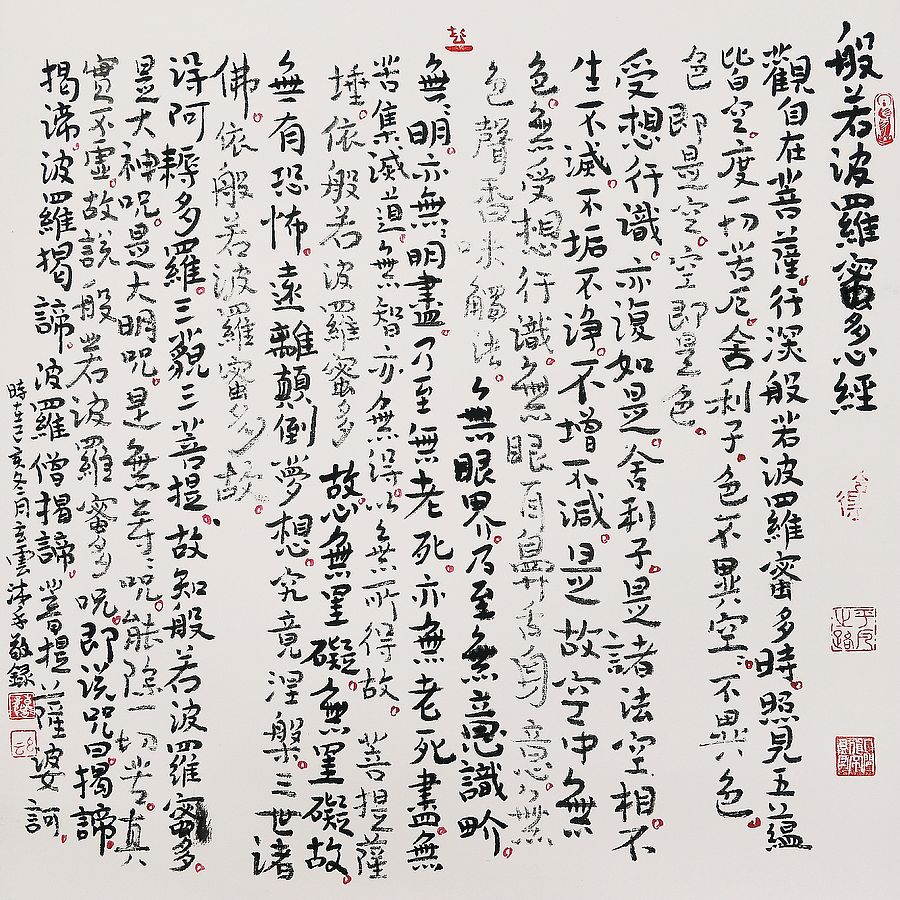 般若波羅蜜多心經
觀自在菩薩行深般若波羅蜜多時照見五蘊
皆空度一切苦厄舍利子色不異空〻不異色
色即是空空即是色
受想行識亦復如是舍利子是諸法空相不
生不滅不垢不淨不增不減是故空中無
色無受想行識無眼耳鼻舌身意無
色聲香味觸法無眼界乃至無意識界
無〻明亦無〻明盡乃至無老死亦無老死盡無
苦集滅道無智亦無得以無所得故菩提薩
埵依般若波羅蜜多故心無罣礙無罣礙故
無有恐怖遠離顛倒夢想究竟涅槃三世諸
佛依般若波羅蜜多故
得阿耨多羅三藐三菩提故知般若波羅蜜多
是大神咒是大明咒是無等〻咒能除一切苦真
實不虛故說般若波羅蜜多咒即說咒曰揭諦
揭諦波羅揭諦波羅僧揭諦菩提薩婆訶
時在己亥冬月玄雲沐手敬録